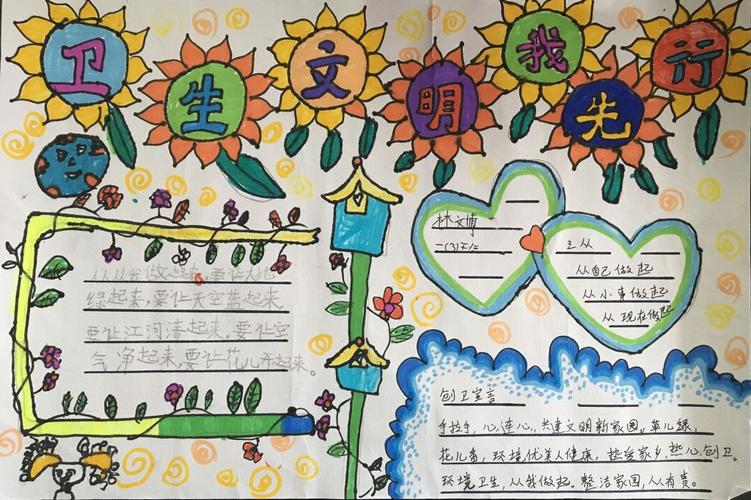 卫生文明我先行
从从从我做起来,要让大地
绿起来,要让天空蓝起来,
要让江河清起来,要让空
气净起来,要让花儿开起来。
林文博
一(3)
三从
从自己做起
从小事做起
从现在做起
创卫宣言
手拉手,心连心,共建文明新家园,草儿绿,
花儿香,环境优美人健康,热爱家乡,热心创卫。
环境卫生,从我做起,整洁家园,人人有责。